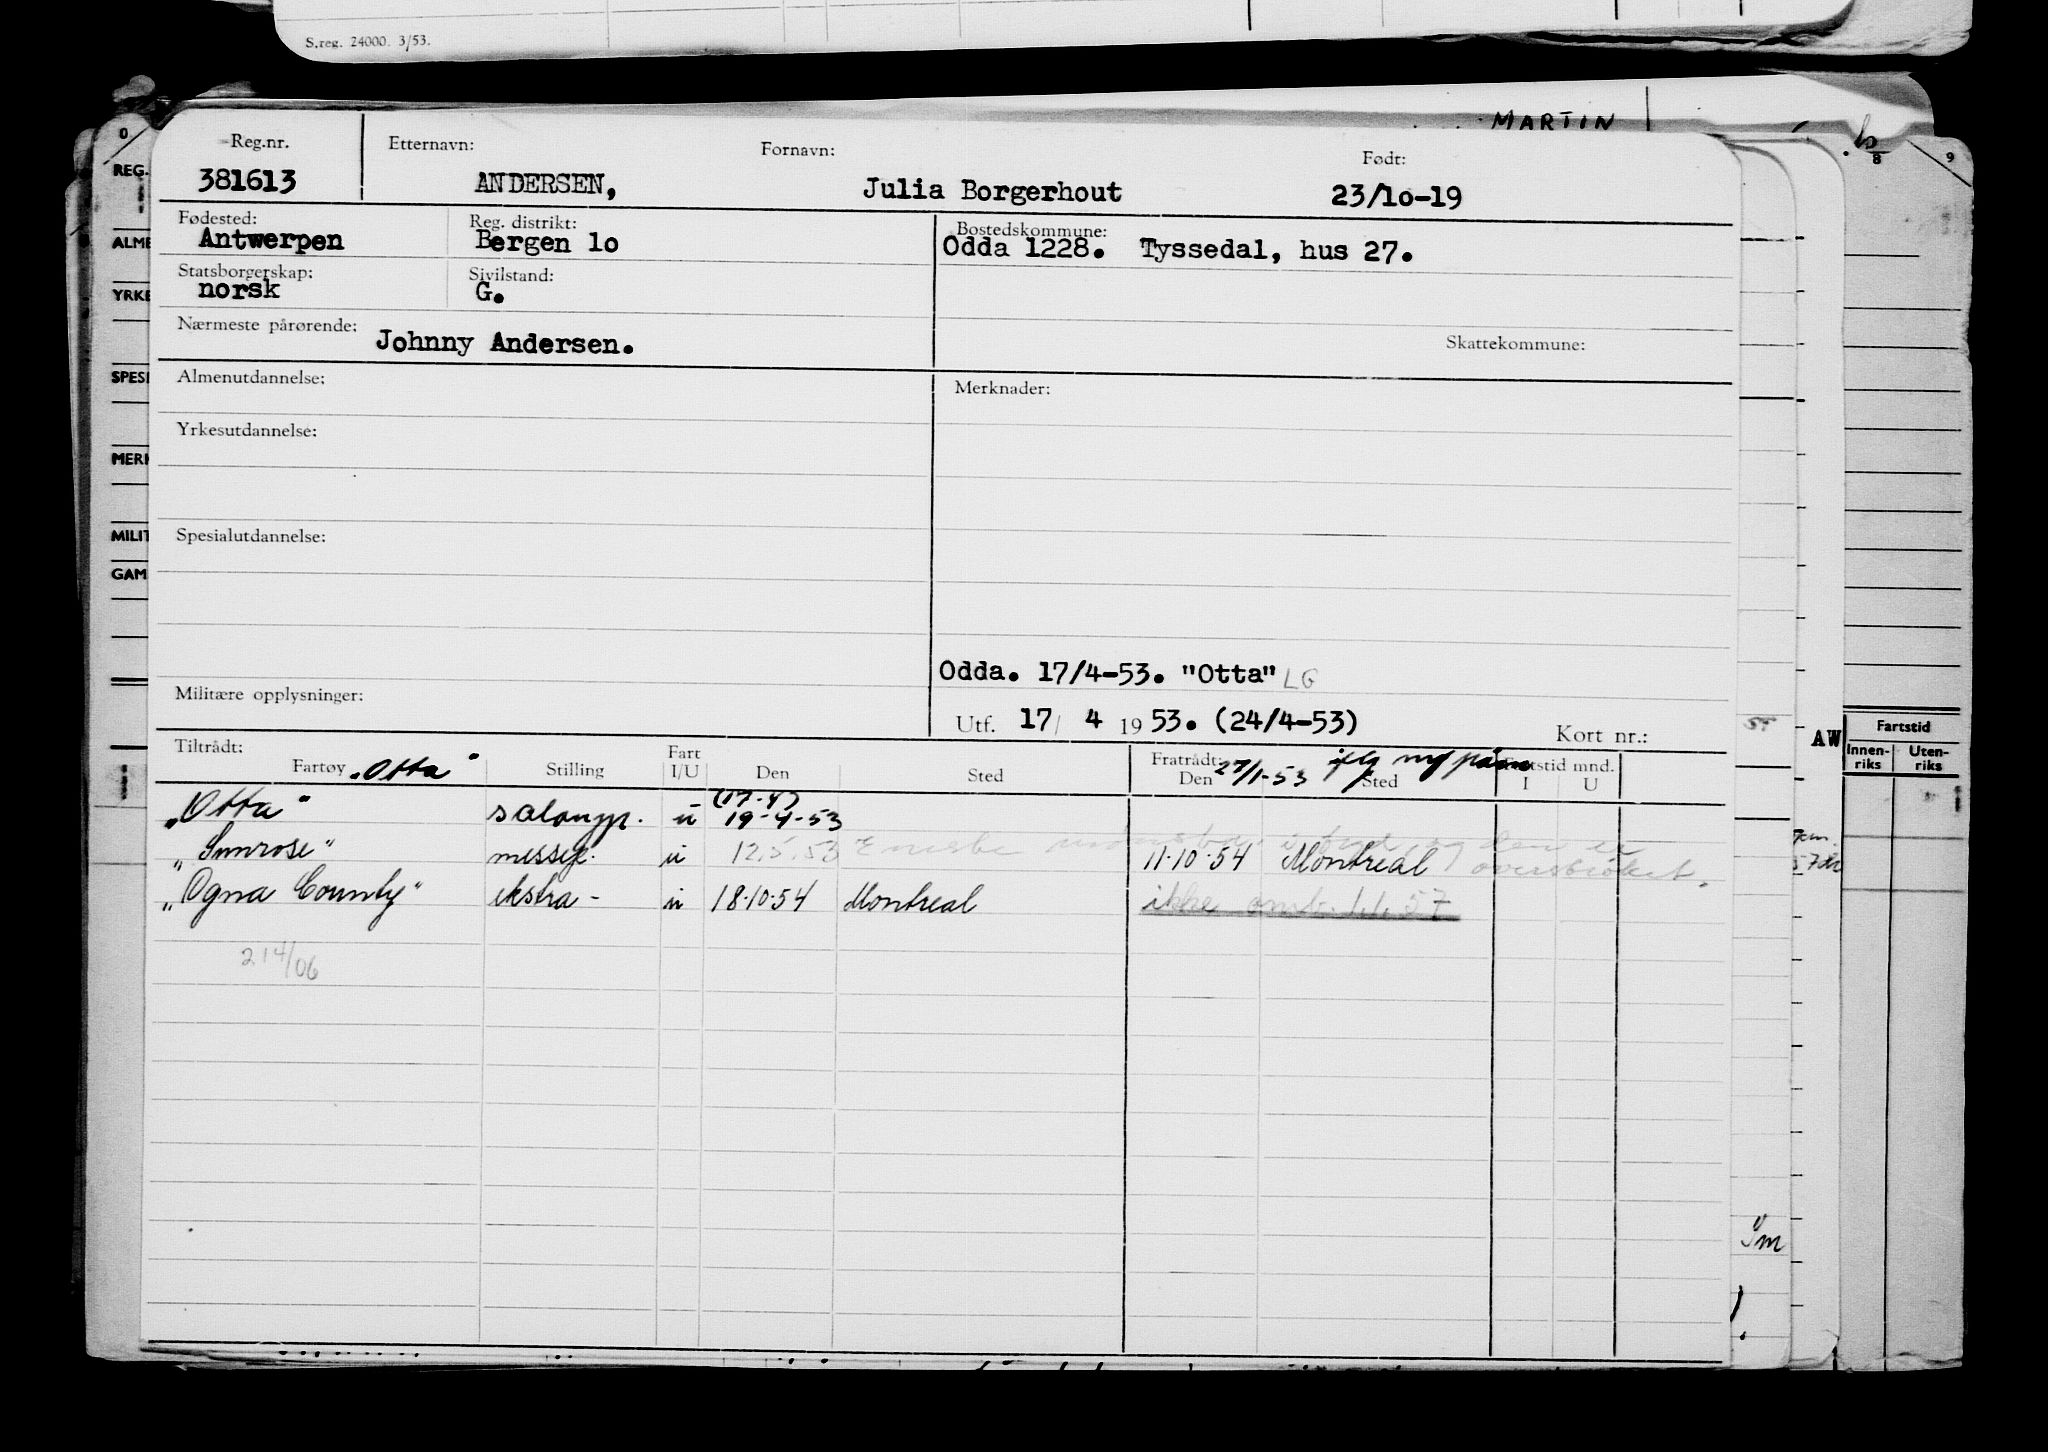 S.reg. 24000. 3/53.
MARTIN
Reg.nr. Etternavn: Fornavn: Født:
381613 ANDERSEN, Julia Borgerhout 23/10-19
Fødested: Reg. distrikt: Bostedskommune:
Antwerpen Bergen 10 Odda 1228. Tyssedal, hus 27.
Statsborgerskap: Sivilstand:
norsk G.
Nærmeste pårørende: Johnny Andersen. Skattekommune:
Almenutdannelse: Merknader:
Yrkesutdannelse:
Spesialutdannelse:
Odda. 17/4-53. "Otta" LG
Militære opplysninger:
Utf. 17/ 4 1953. (24/4-53) Kort nr.:
Tiltrådt: Fartøy „Otta" Stilling Fart I/U Den Sted Fratrådt: Den 27/1-53 Sted Fartstid mnd. I U
(17-4)
„Otta" salongp. u 19-4-53
„Sunrose" messep. u 12.5.53 11.10.54 Montreal
„Ogna County" ekstra- u 18.10.54 Montreal ikke omb. 1.1.57
214/06
0
REG.
ALME
YRKE
SPESI
MERK
MILIT
GAM
8 9
AW
Fartstid
Innen- Uten-
riks riks